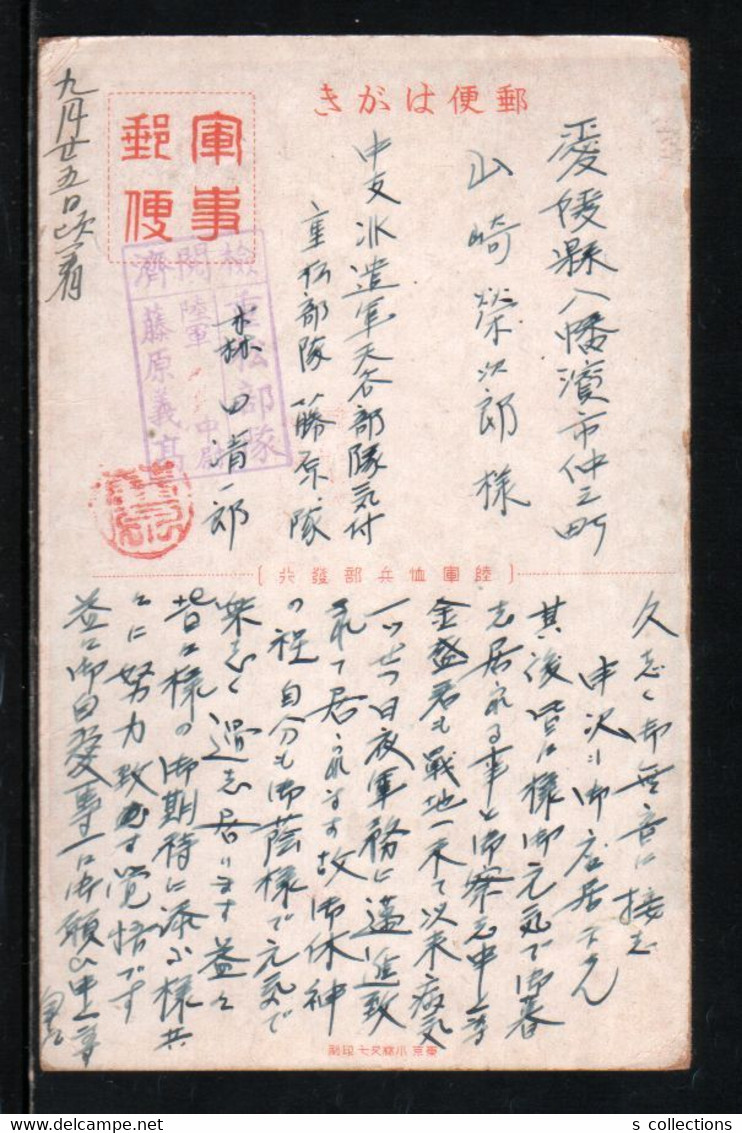 郵便はがき
軍事郵便
愛媛縣八幡濱市仲之町
山崎榮次郎様
中支派遣軍天谷部隊気付
重松部隊藤原隊
森田清一郎
檢閲濟
重松部隊
陸軍 中尉
藤原義高
九月廿五日
陸軍恤兵部發行
久志く御無音に接志
申沢
其後皆々様御元気で御暮
志居られる事と御察志申上
金盛君も戦地へ来て以来病気
一つせづ日夜軍務に邁進致
されて居られます故御休神
の程 自分も御蔭様で元気で
楽志く過志居ります 益々
皆々様の御期待に添ふ様共
々に努力致す覚悟です
益々御自愛専一に御願ひ申
東京 印刷
s collections